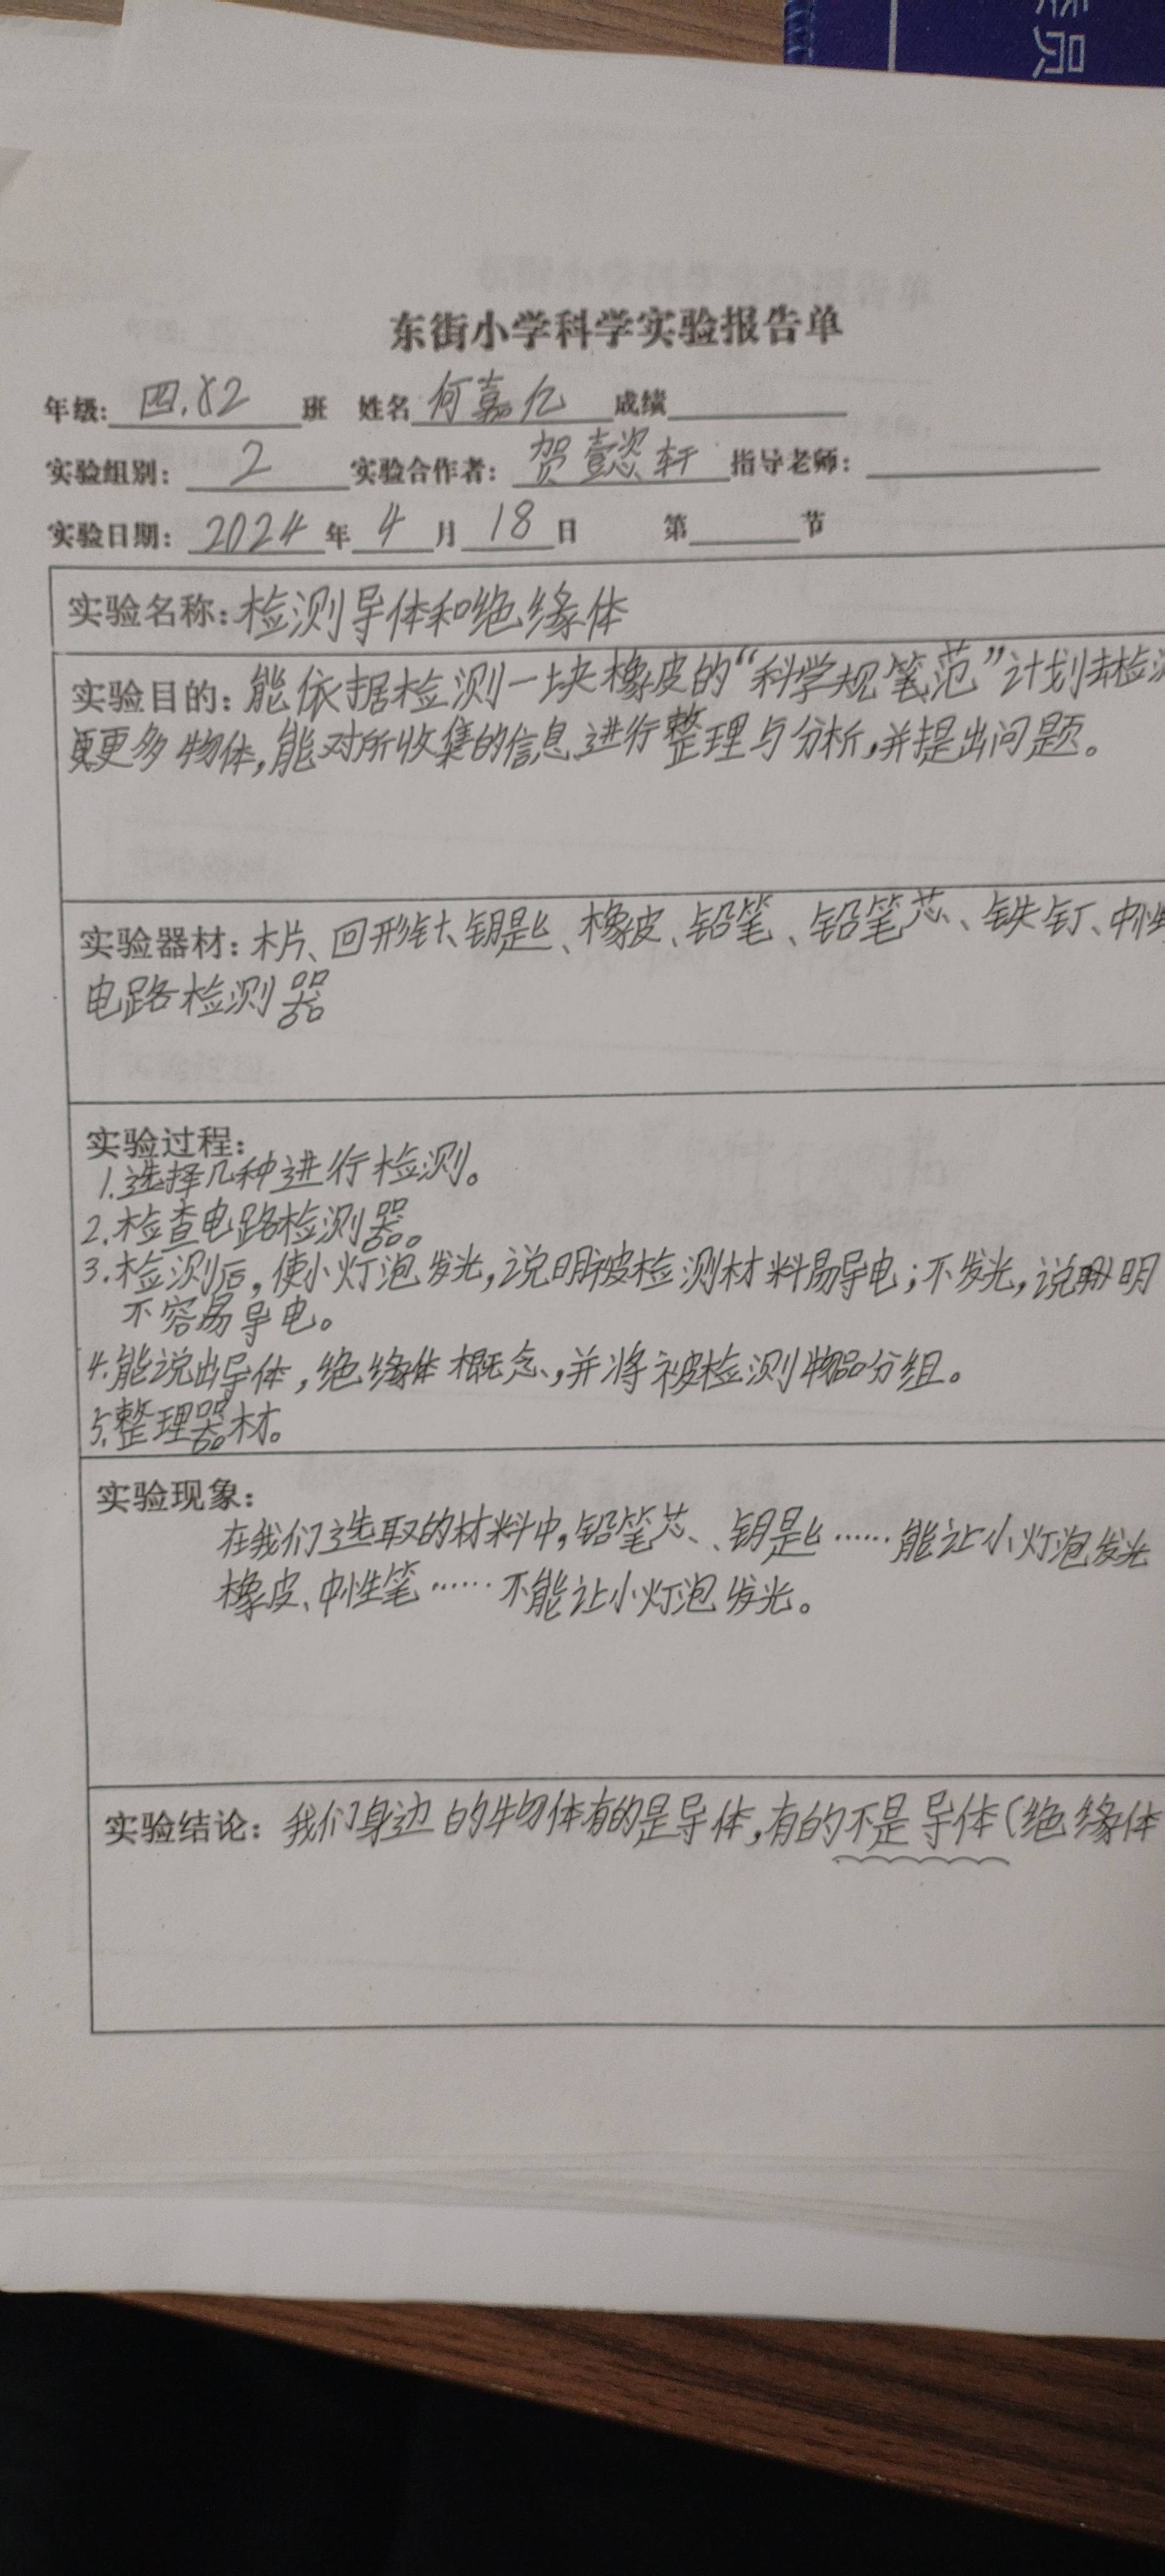 员
东街小学科学实验报告单
年级: 四.82 班 姓名 何嘉亿 成绩
实验组别: 2 实验合作者: 贺懿轩 指导老师:
实验日期: 2024 年 4 月 18 日 第 节
实验名称:检测导体和绝缘体
实验目的:能依据检测一块橡皮的“科学规笔范”计划去检测
更多物体,能对所收集的信息进行整理与分析,并提出问题。
实验器材:木片、回形针、钥匙、橡皮、铅笔、铅笔芯、铁钉、中性
电路检测器
实验过程:
1.选择几种进行检测。
2.检查电路检测器。
3.检测后,使小灯泡发光,说明被检测材料易导电;不发光,说明
不容易导电。
4.能说出导体,绝缘体概念,并将被检测物品分组。
5.整理器材。
实验现象:
在我们选取的材料中,铅笔芯、钥匙……能让小灯泡发光
橡皮、中性笔……不能让小灯泡发光。
实验结论:我们身边的物体有的是导体,有的不是导体(绝缘体